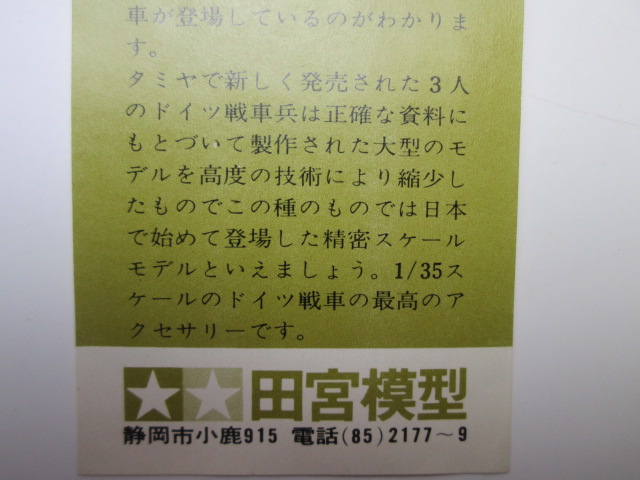 車が登場しているのがわかりま
す。
タミヤで新しく発売された3人
のドイツ戦車兵は正確な資料に
もとづいて製作された大型のモ
デルを高度の技術により縮少し
たものでこの種のものでは日本
で始めて登場した精密スケール
モデルといえましょう。1/35ス
ケールのドイツ戦車の最高のア
クセサリーです。
田宮模型
静岡市小鹿915 電話(85)2177～9